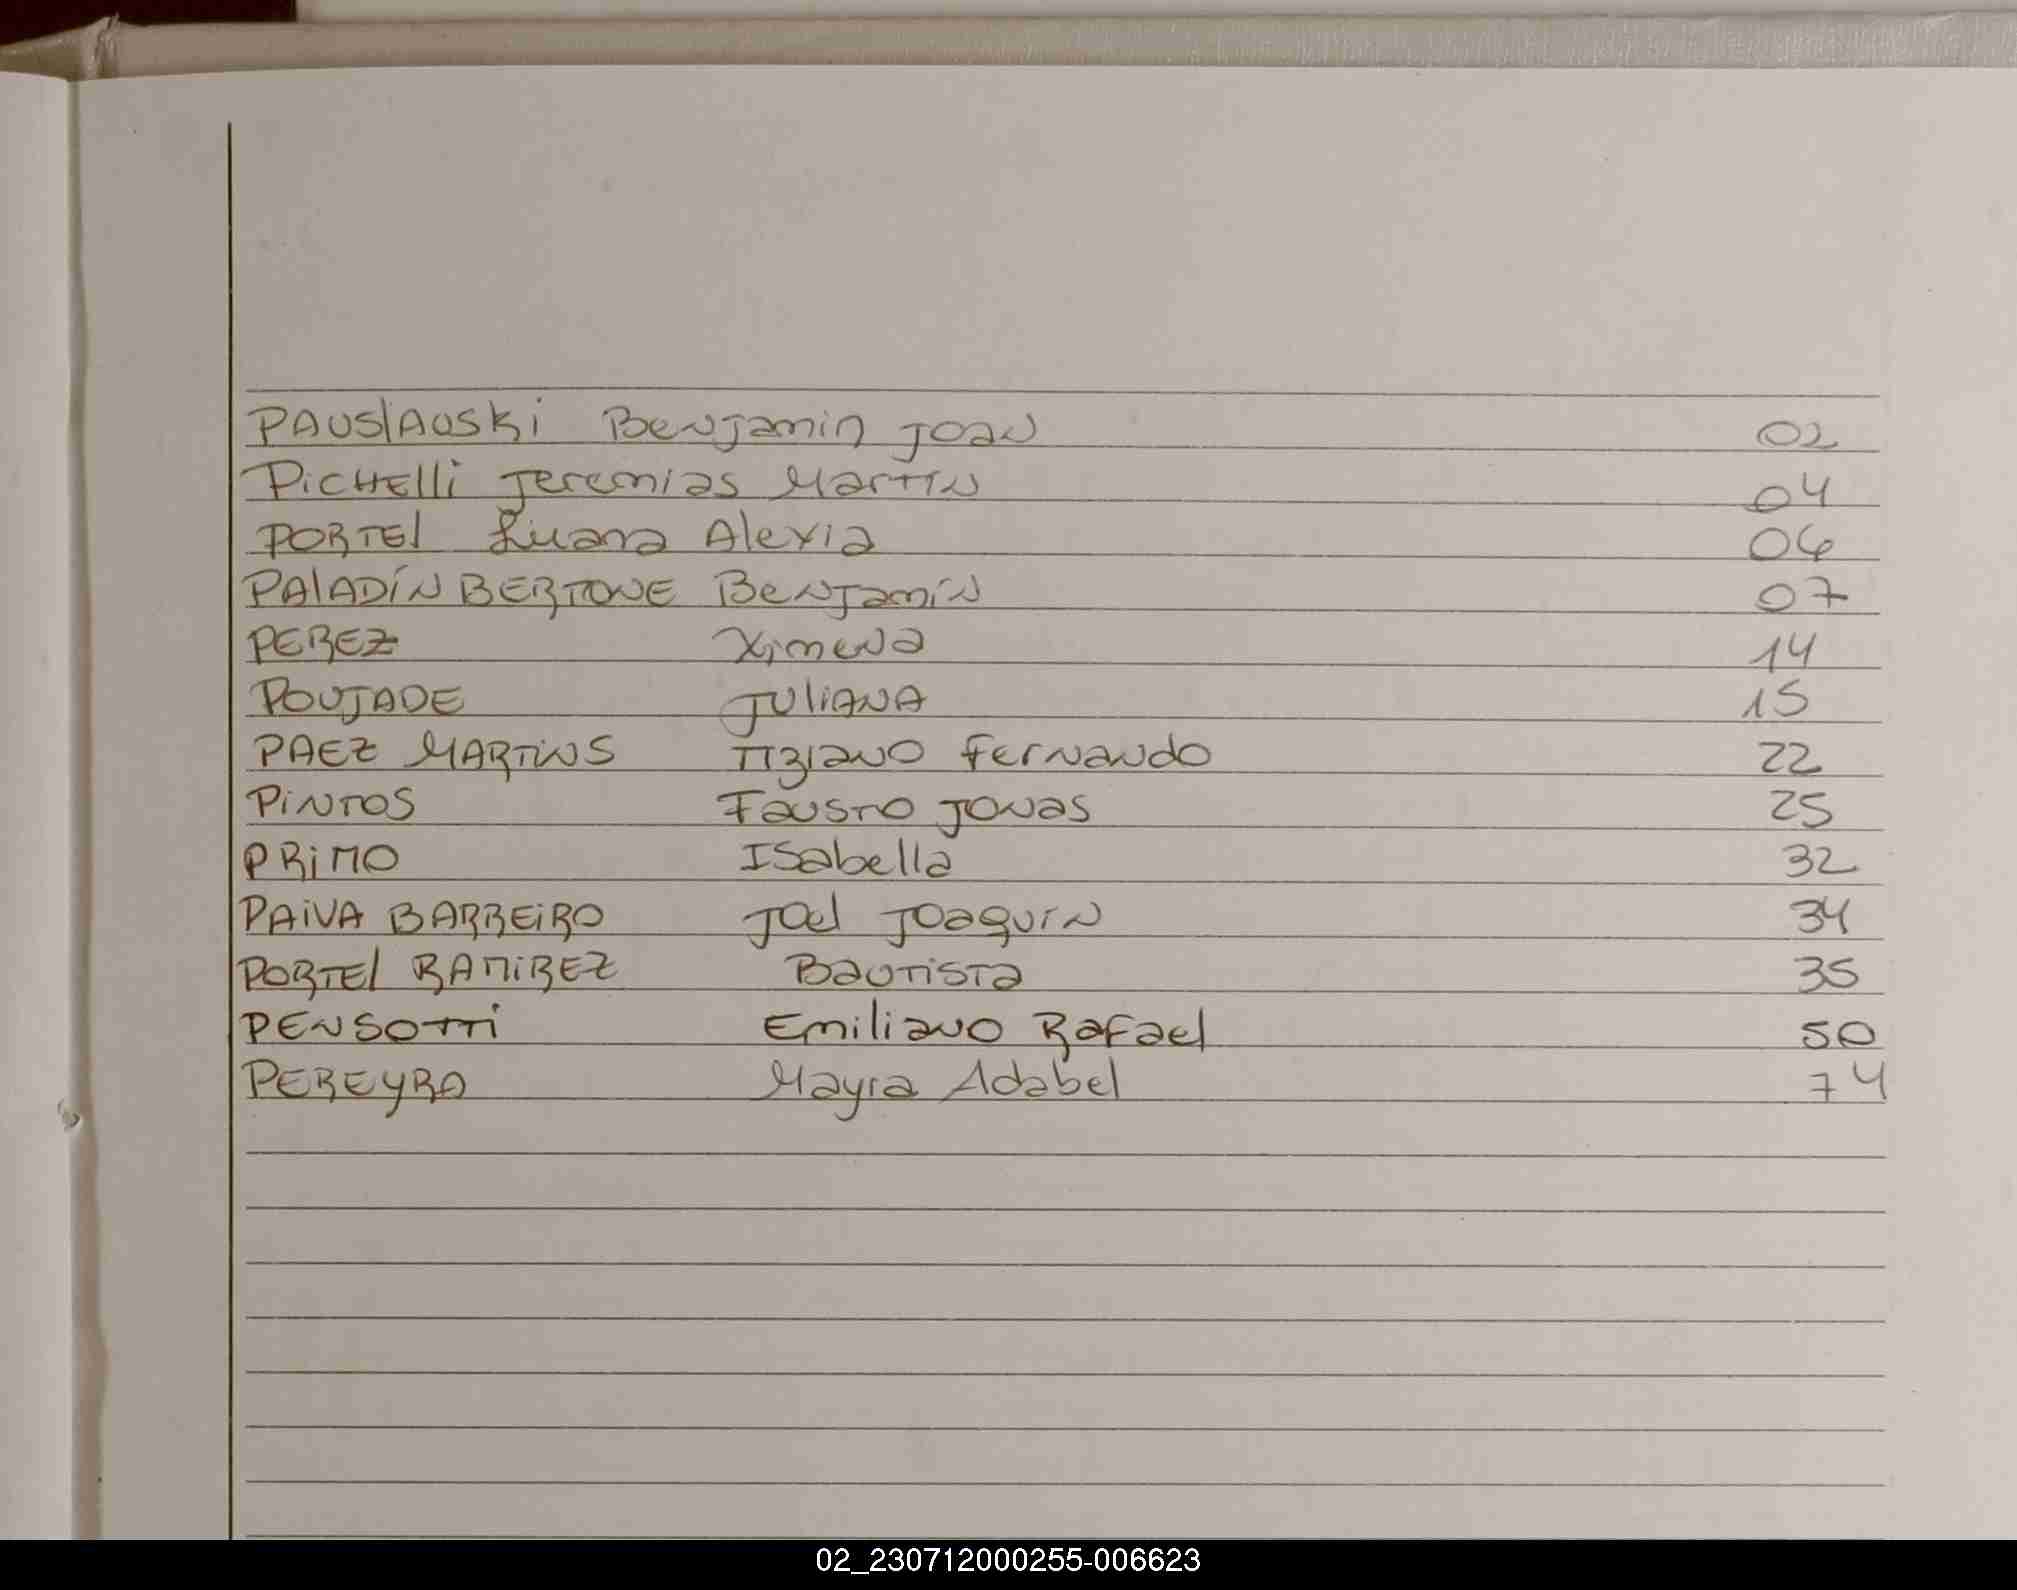 PAUSlAUSKi Benjamin Joan 02
PiCHElli Jeremias Martin 04
PORTEl Luana Alexia 06
PAlADíN BERTONE Benjamín 07
PEREZ Ximena 14
POUJADE JUliANA 15
PAEZ MARTiNS Tiziano Fernando 22
PiNTOS Fausto Jonas 25
PRiMO Isabella 32
PAiVA BARREiRO Joel Joaquin 34
PORTEl RAMiREZ Bautista 35
PENSOTTi Emiliano Rafael 50
PEREYRA Mayra Adabel 74
02_230712000255-006623